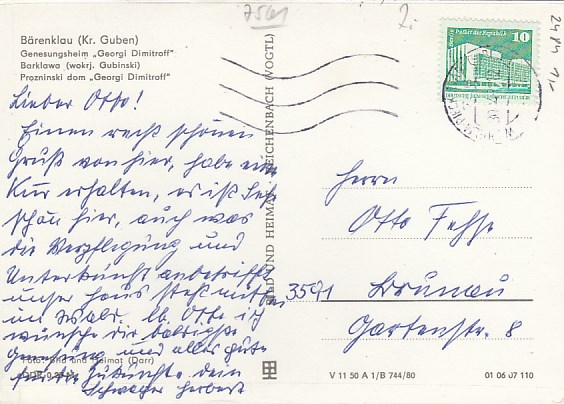 7501
2,-
Bärenklau (Kr. Guben)
Genesungsheim „Georgi Dimitroff"
Barklawa (wokrj. Gubinski)
Prozninski dom „Georgi Dimitroff"
Lieber Otto!
Einen recht schönen
Gruß von hier, habe eine
Kur erhalten, es ist sehr
schön hier, auch was
die Verpflegung und
Unterkunft anbetrifft
unser Haus steht mitten
im Wald. lb. Otto ich
wünsche dir baldigste
Genesung und alles gute
für die Zukunft. dein
Schwager Herbert
Foto: Bild und Heimat (Darr)
BILD UND HEIMAT REICHENBACH (VOGTL)
Palast der Republik
10
Herrn
Otto Fehse
3591 Brunau
Gartenstr. 8
V 11 50 A 1/B 744/80
01 06 07 110